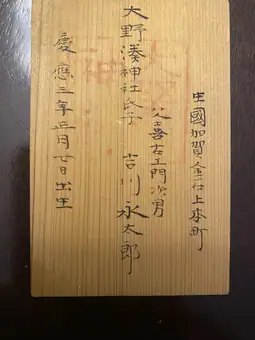 國加賀金 上 町
父喜右工門次男
大野湊神社氏子 吉川永太郎
慶應三年正月廿日出生